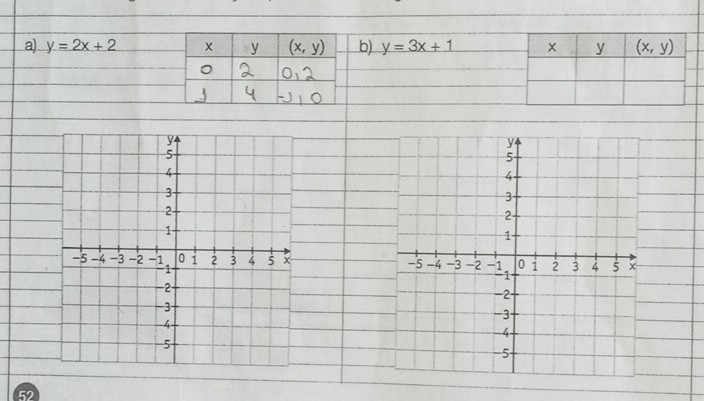 a) y = 2x + 2
x y (x, y)
0 2 0,2
1 4 -1,0
b) y = 3x + 1
x y (x, y)
y
5
4
3
2
1
-5 -4 -3 -2 -1 0 1 2 3 4 5 x
-1
-2
-3
-4
-5
y
5
4
3
2
1
-5 -4 -3 -2 -1 0 1 2 3 4 5 x
-1
-2
-3
-4
-5
52